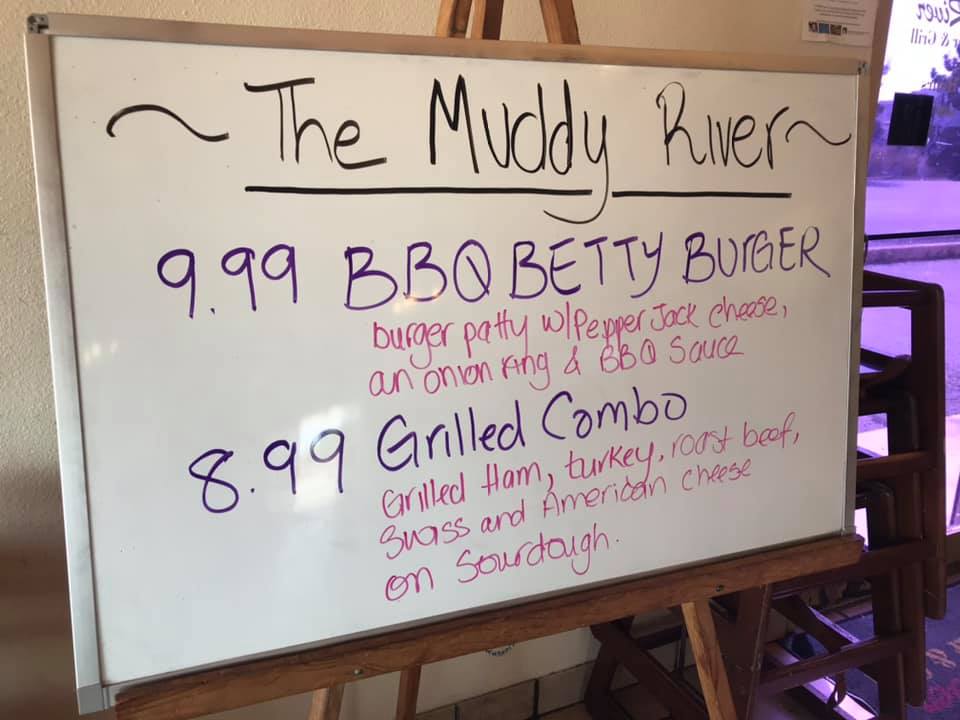 ~ The Muddy River ~
9.99 BBQ BETTY BURGER
burger patty w/Pepper Jack cheese,
an onion ring & BBQ Sauce
8.99 Grilled Combo
Grilled Ham, turkey, roast beef,
Swiss and American cheese
on Sourdough.
River
& Grill